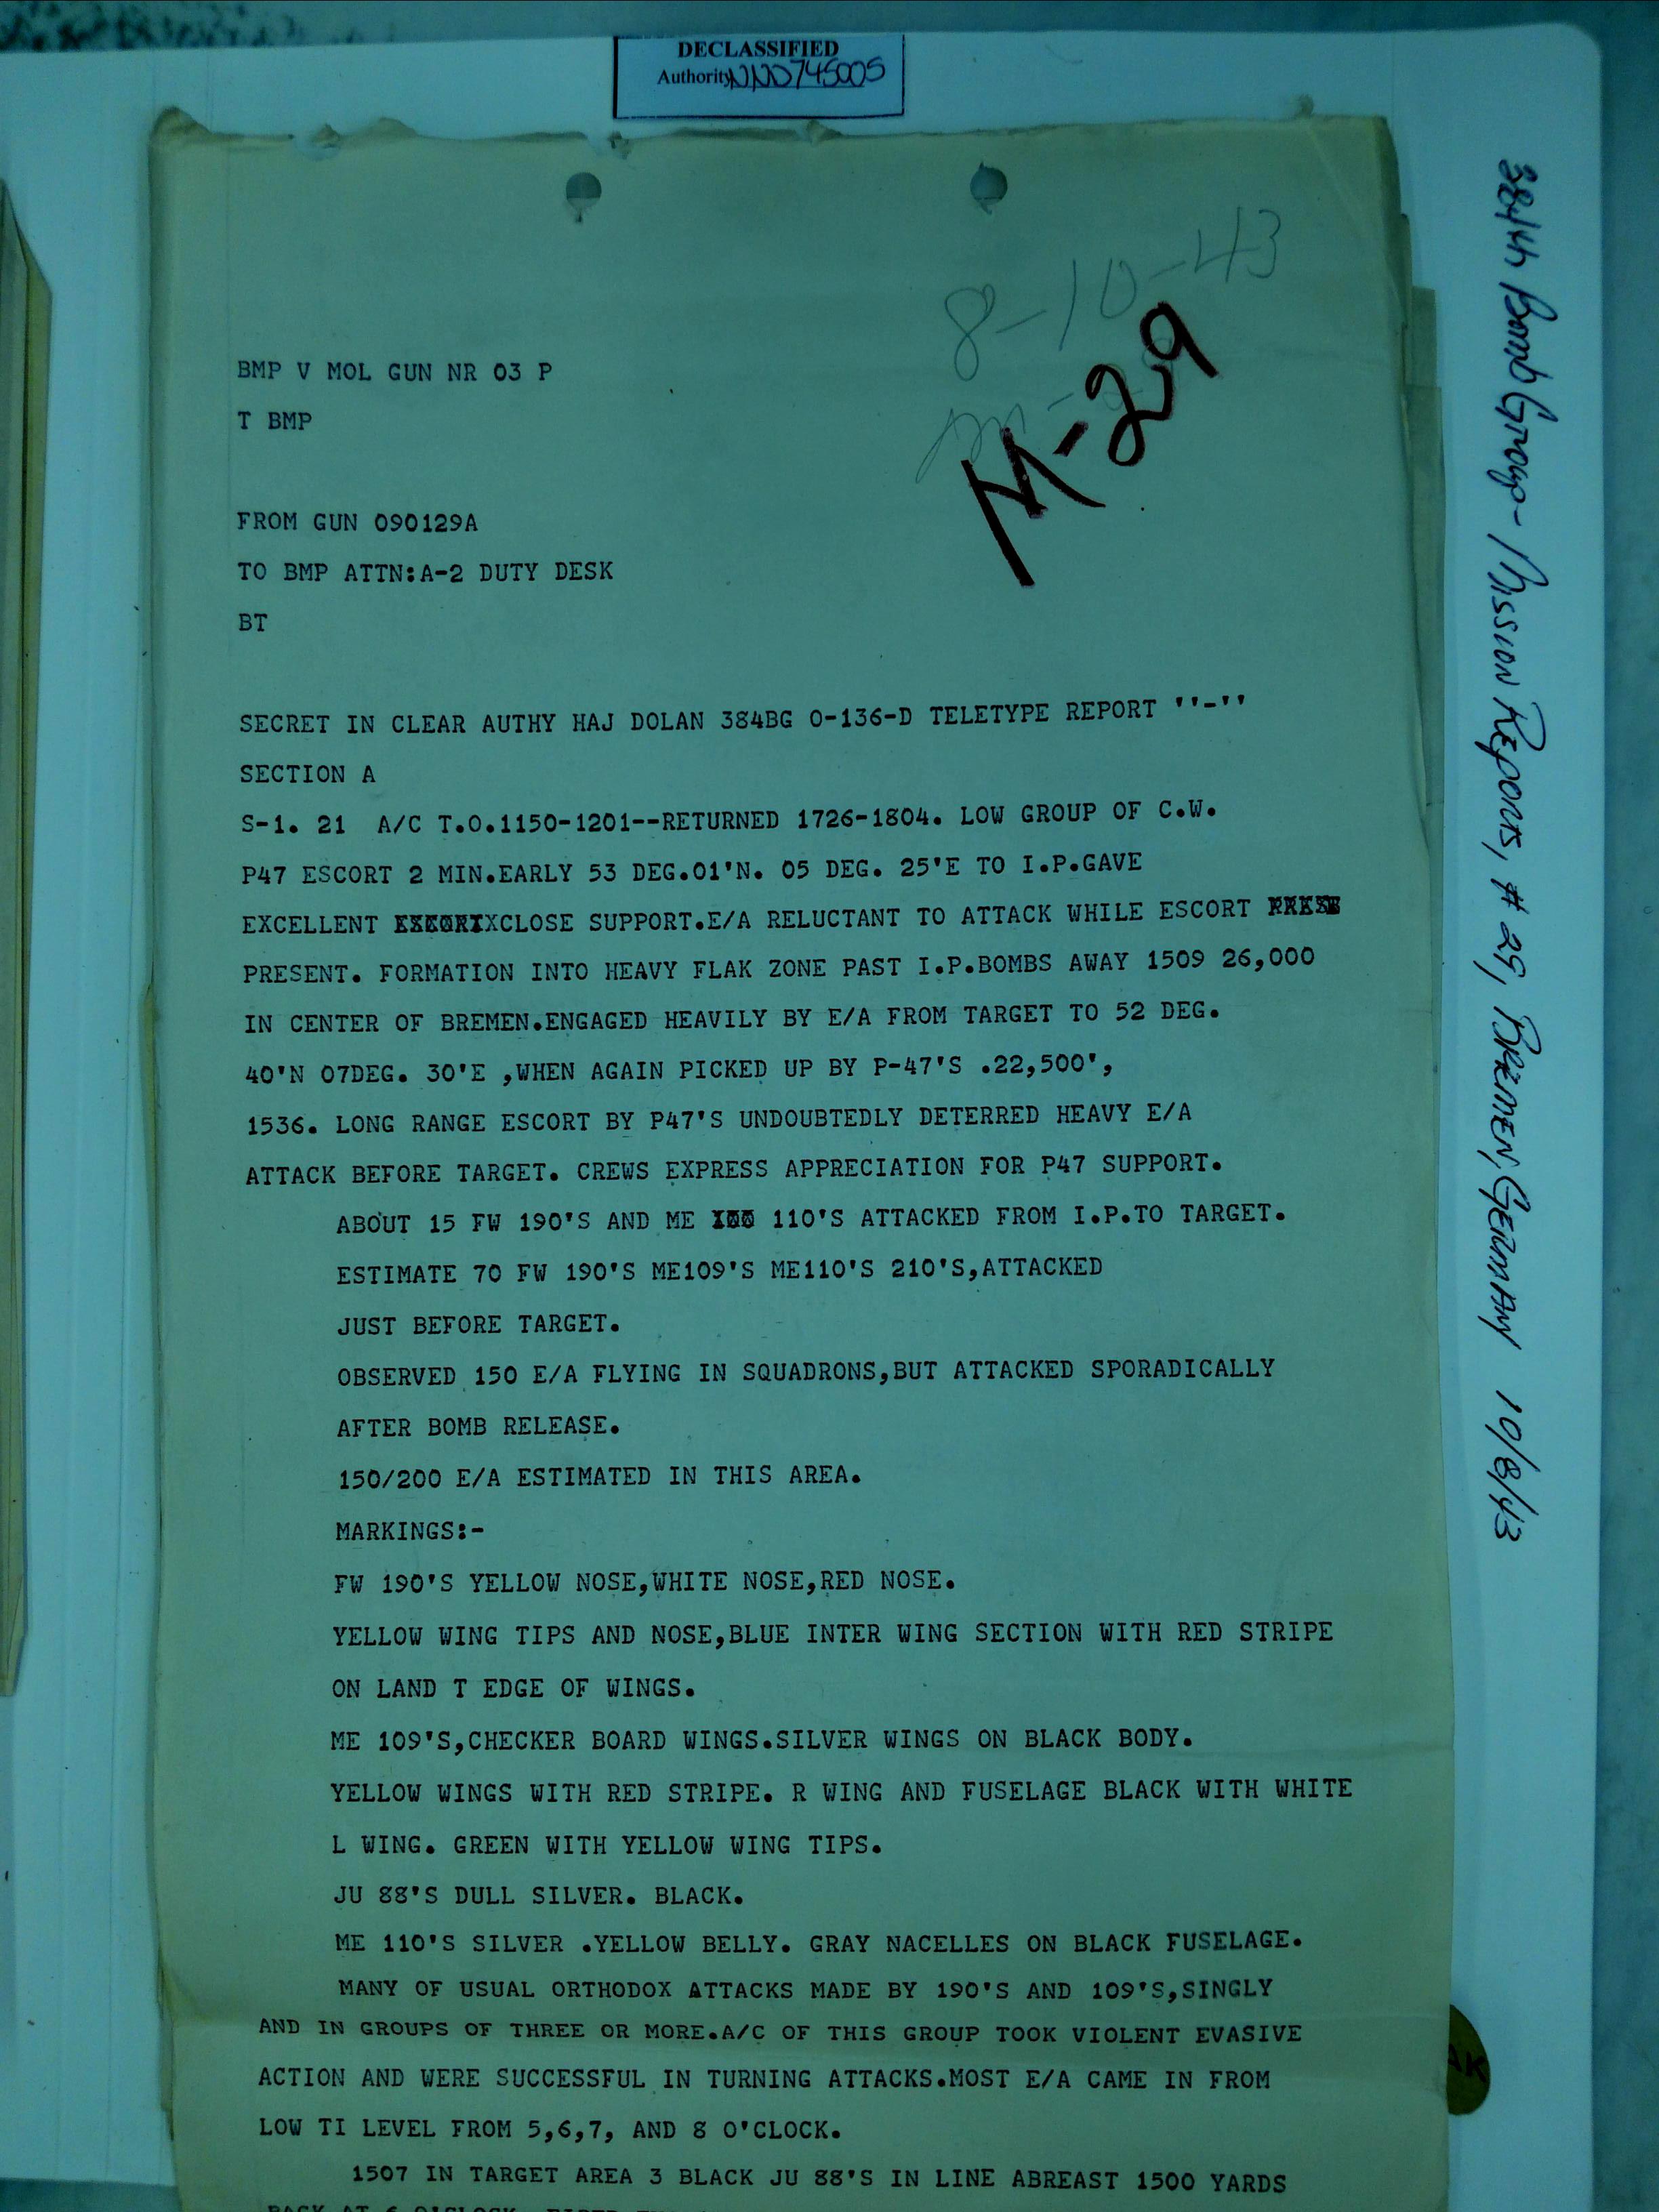 DECLASSIFIED
Authority NND745005
8-10-43
M-29
BMP V MOL GUN NR 03 P
T BMP
FROM GUN 090129A
TO BMP ATTN:A-2 DUTY DESK
BT
SECRET IN CLEAR AUTHY HAJ DOLAN 384BG O-136-D TELETYPE REPORT ''-''
SECTION A
S-1. 21 A/C T.O.1150-1201--RETURNED 1726-1804. LOW GROUP OF C.W.
P47 ESCORT 2 MIN.EARLY 53 DEG.01'N. 05 DEG. 25'E TO I.P.GAVE
EXCELLENT CLOSE SUPPORT.E/A RELUCTANT TO ATTACK WHILE ESCORT
PRESENT. FORMATION INTO HEAVY FLAK ZONE PAST I.P.BOMBS AWAY 1509 26,000
IN CENTER OF BREMEN.ENGAGED HEAVILY BY E/A FROM TARGET TO 52 DEG.
40'N 07DEG. 30'E ,WHEN AGAIN PICKED UP BY P-47'S .22,500',
1536. LONG RANGE ESCORT BY P47'S UNDOUBTEDLY DETERRED HEAVY E/A
ATTACK BEFORE TARGET. CREWS EXPRESS APPRECIATION FOR P47 SUPPORT.
ABOUT 15 FW 190'S AND ME 110'S ATTACKED FROM I.P.TO TARGET.
ESTIMATE 70 FW 190'S ME109'S ME110'S 210'S,ATTACKED
JUST BEFORE TARGET.
OBSERVED 150 E/A FLYING IN SQUADRONS,BUT ATTACKED SPORADICALLY
AFTER BOMB RELEASE.
150/200 E/A ESTIMATED IN THIS AREA.
MARKINGS:-
FW 190'S YELLOW NOSE,WHITE NOSE,RED NOSE.
YELLOW WING TIPS AND NOSE,BLUE INTER WING SECTION WITH RED STRIPE
ON LAND T EDGE OF WINGS.
ME 109'S,CHECKER BOARD WINGS.SILVER WINGS ON BLACK BODY.
YELLOW WINGS WITH RED STRIPE. R WING AND FUSELAGE BLACK WITH WHITE
L WING. GREEN WITH YELLOW WING TIPS.
JU 88'S DULL SILVER. BLACK.
ME 110'S SILVER .YELLOW BELLY. GRAY NACELLES ON BLACK FUSELAGE.
MANY OF USUAL ORTHODOX ATTACKS MADE BY 190'S AND 109'S,SINGLY
AND IN GROUPS OF THREE OR MORE.A/C OF THIS GROUP TOOK VIOLENT EVASIVE
ACTION AND WERE SUCCESSFUL IN TURNING ATTACKS.MOST E/A CAME IN FROM
LOW TI LEVEL FROM 5,6,7, AND 8 O'CLOCK.
1507 IN TARGET AREA 3 BLACK JU 88'S IN LINE ABREAST 1500 YARDS
384th Bomb Group- Mission Reports, # 29, BREMEN, GERMANY 10/8/43